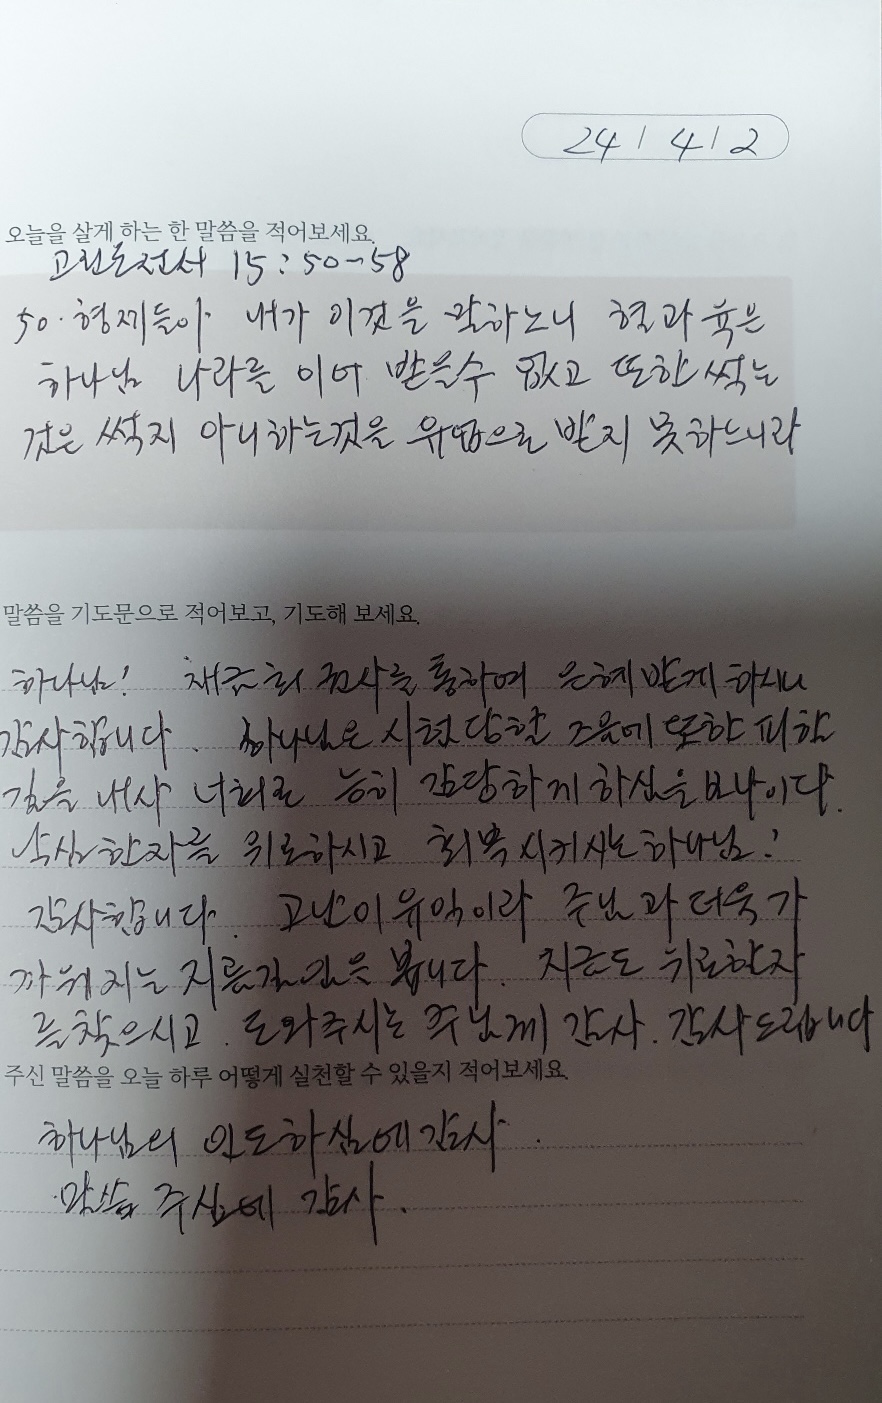 24 / 4 / 2
오늘을 살게 하는 한 말씀을 적어보세요.
고린도전서 15:50-58
50. 형제들아 내가 이것을 말하노니 혈과 육은
하나님 나라를 이어 받을수 없고 또한 썩는
것은 썩지 아니하는것을 유업으로 받지 못하느니라
말씀을 기도문으로 적어보고, 기도해 보세요.
하나님! 권사를 통하여 은혜 받게 하시니
감사합니다. 하나님은 시험당할 즈음에 또한 피할
길을 내사 너희로 능히 감당하게 하심을 보나이다.
낙심한자를 위로하시고 회복시키시는 하나님!
감사합니다. 고난이 유익이라 주님과 더욱 가
까워지는 지름길임을 봅니다. 지금도 위로할자
를 찾으시고. 도와주시는 주님께 감사. 감사드립니다
주신 말씀을 오늘 하루 어떻게 실천할 수 있을지 적어보세요.
하나님의 인도하심에 감사.
말씀 주심에 감사.